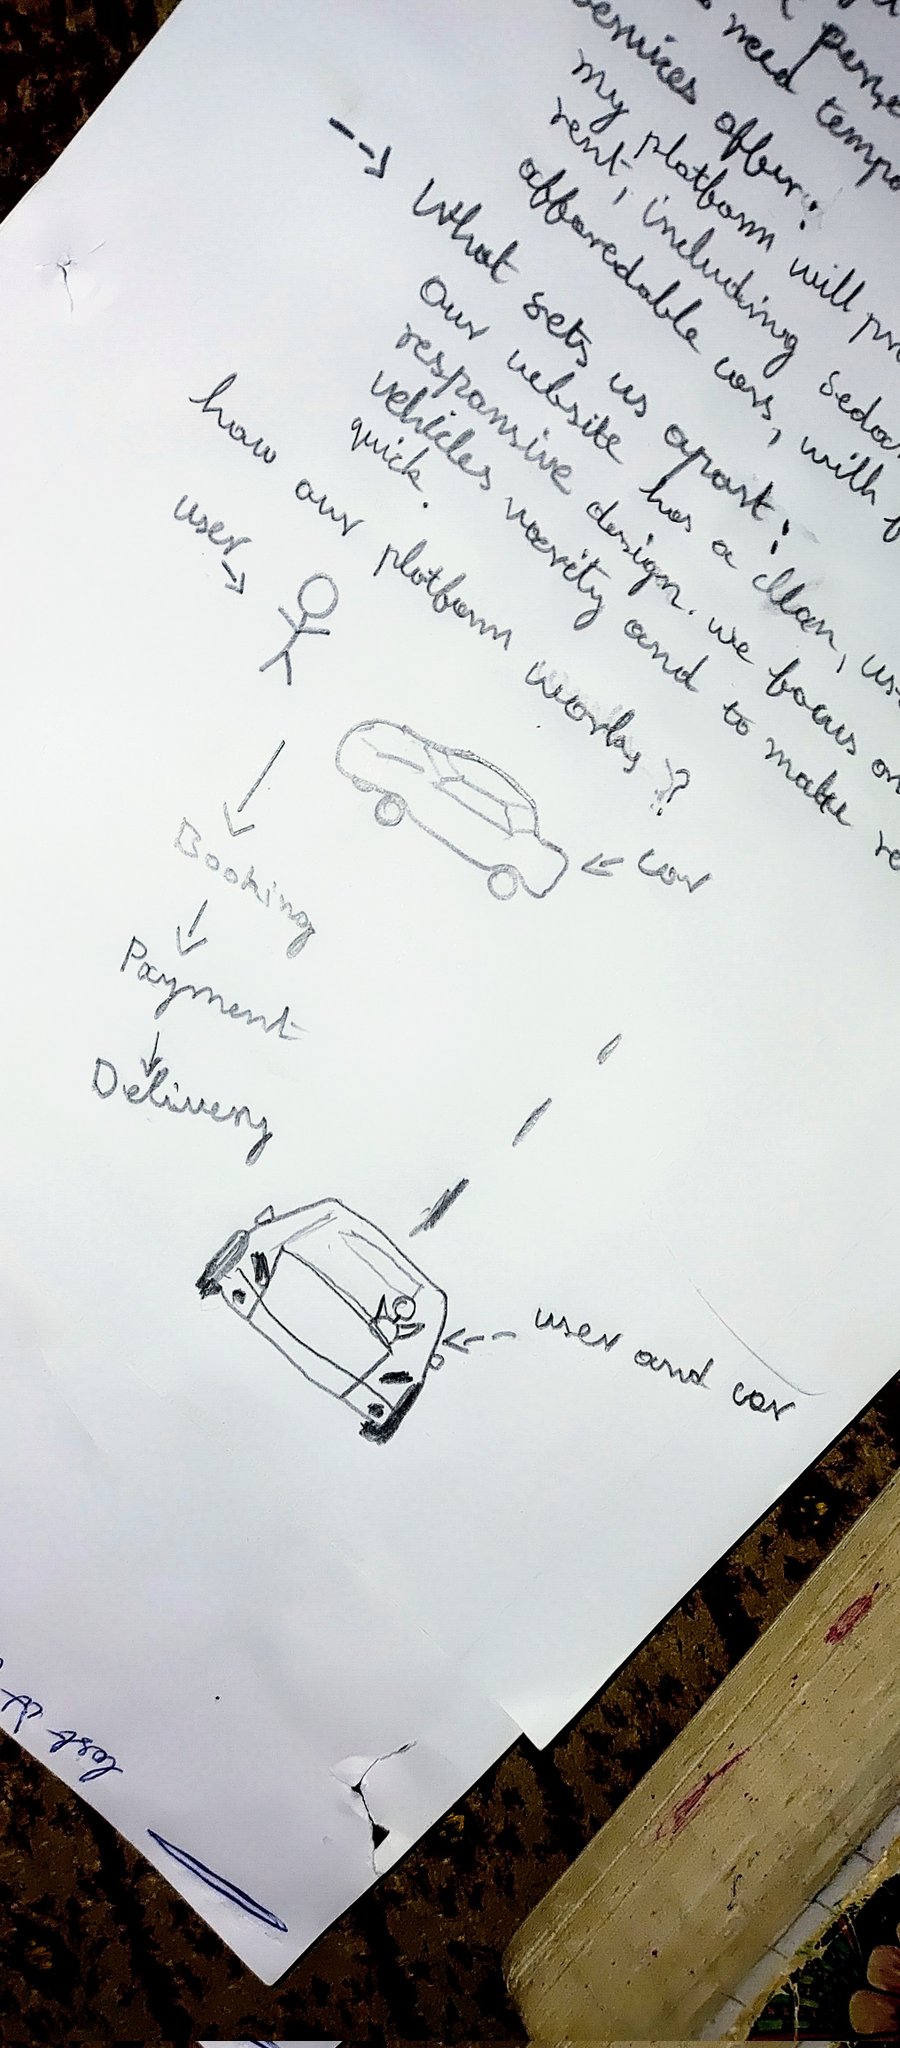 need tempo
services offer:
my platform will pr
rent, including seda
afforedable cars, with f
What sets us apart:
Our website has a clean, us
responsive design. we focus on
vehicles varity and to make re
quick.
how our platform works?
user
car
Booking
Payment
Delivery
user and car